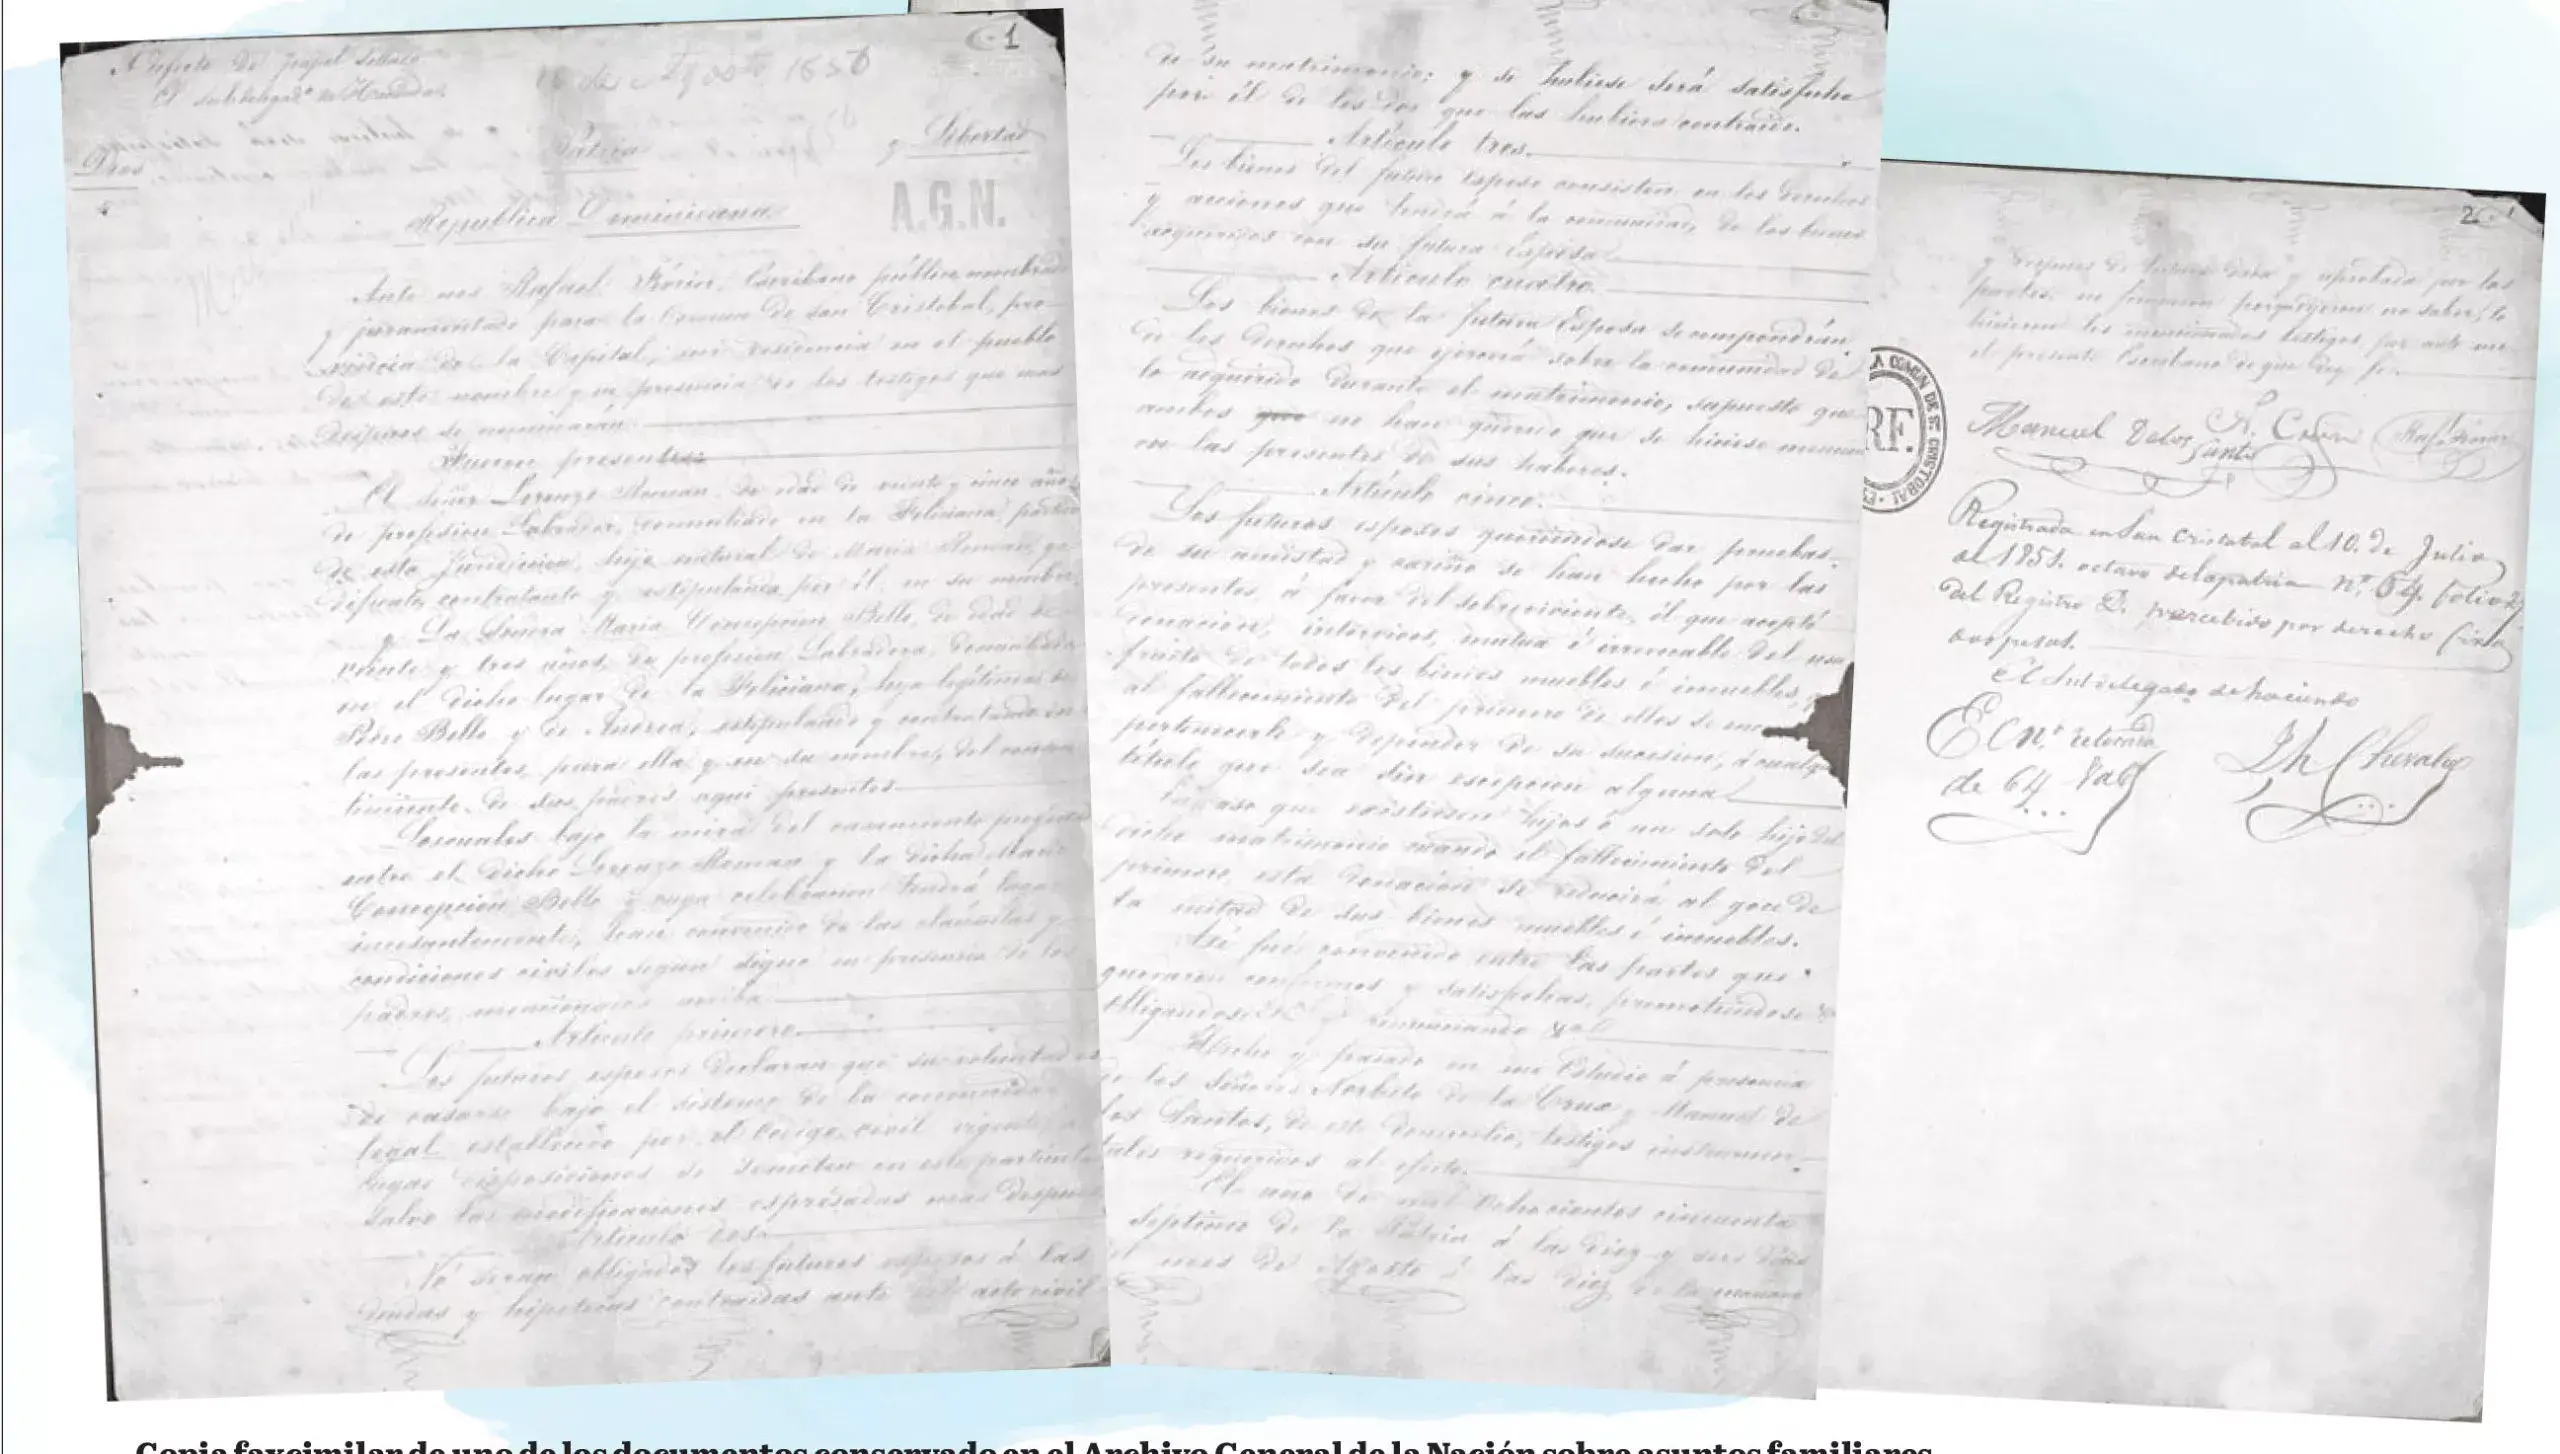 A defecto de papel sellado
El subdelegdo. de Hacienda
16 de Agosto 1850
1
Dios Patria y Libertad
A.G.N.
Republica Dominicana
Ante nos Rafael Escribano público nombrado
y juramentado para la Comun de San Cristobal, pro-
vincia de la Capital, residencia en el pueblo
de este nombre y en presencia de los testigos que mas
despues se nominarán
Fueron presentes
El Señor Lorenzo Roman, de edad de veinte y cinco años
de profesion Labrador, domiciliado en la Feliciana,
de esta Jurisdiccion, hijo natural de Maria Roman,
contratante y estipulando por él, en su nombre,
y La Señora Maria Concepcion Bello, de edad de
veinte y tres años, de profesion Labradora, domiciliada
en el dicho lugar de la Feliciana, hija legitima de
Pedro Bello y de Andrea, estipulando y contratando en
las presentes, para ella y en su nombre, del consen-
timiento de sus padres aqui presentes
Los cuales bajo la mira del casamiento
entre el dicho Lorenzo Roman y la dicha Maria
Concepcion Bello y cuya celebracion tendrá lugar
incesantemente, han convenido de las cláusulas y
condiciones civiles segun sigue en presencia de los
padres, mencionados arriba
Articulo primero
Los futuros esposos declaran que su voluntad es
de casarse bajo el sistema de la comunidad
legal establecido por el Codigo civil vigente, a
cuyas disposiciones se someten en este particular
salvo las modificaciones espresadas mas despues
Articulo dos
No seran obligados los futuros esposos á las
deudas y hipotecas contraidas ante del acto civil
de su matrimonio; y si hubiese será satisfecho
por él de los dos que las hubiera contraido.
Articulo tres.
Los bienes del futuro esposo consisten en los derechos
y acciones que tendrá á la comunidad, de los bienes
adquiridos con su futura Esposa
Articulo cuatro.
Los bienes de la futura Esposa se compondrán
de los derechos que ejercerá sobre la comunidad de
lo adquirido durante el matrimonio, supuesto que
ambos que no han querido que se hiciese
en las presentes de sus haberes.
Articulo cinco.
Los futuros esposos queriendose dar pruebas
de su amistad y cariño se han hecho por las
presentes, á favor del sobreviviente, él que aceptó
donacion, intervivos, mutua é irrevocable del usu-
fructo de todos los bienes muebles é inmuebles,
al fallecimiento del primero de ellos
pertenecerle y depender de su sucesion, á cualq
titulo que sea sin escepcion alguna
En caso que existiesen hijos ó un solo hijo del
dicho matrimonio cuando el fallecimiento del
primero, esta donacion se reducirá al goce de
la mitad de sus bienes muebles é inmuebles.
Asi fué convenido entre las partes que
quedaron conformes y satisfechas, prometiendose
obligandose y renunciando
Hecho y pasado en mi Estudio á presencia
de los Señores Norberto de la Cruz y Manuel de
los Santos, de este domicilio, testigos instrumen-
tales requeridos al efecto.
El año de mil ochocientos cincuenta
septimo de la Patria á los diez y seis dias
del mes de Agosto á las diez de la mañana
2
y despues de haver dada y aprobada por las
partes, no firmaron porque dijeron no saber, lo
hicieron los mencionados testigos por ante mi
el presente Escribano de que doy fe.
LA COMUN DE Sn. CRISTOBAL
RF.
Manuel De los Santos
Registrada en San Cristobal al 10. de Julio
de 1851. octavo de la patria nº. 64. folio
del Registro D. percebido por derecho
dos pesos.
El Subdelegado de hacienda
Chevalier
Copia faxcimilar de uno de los documentos conservado en el Archivo General de la Nación sobre asuntos familiares